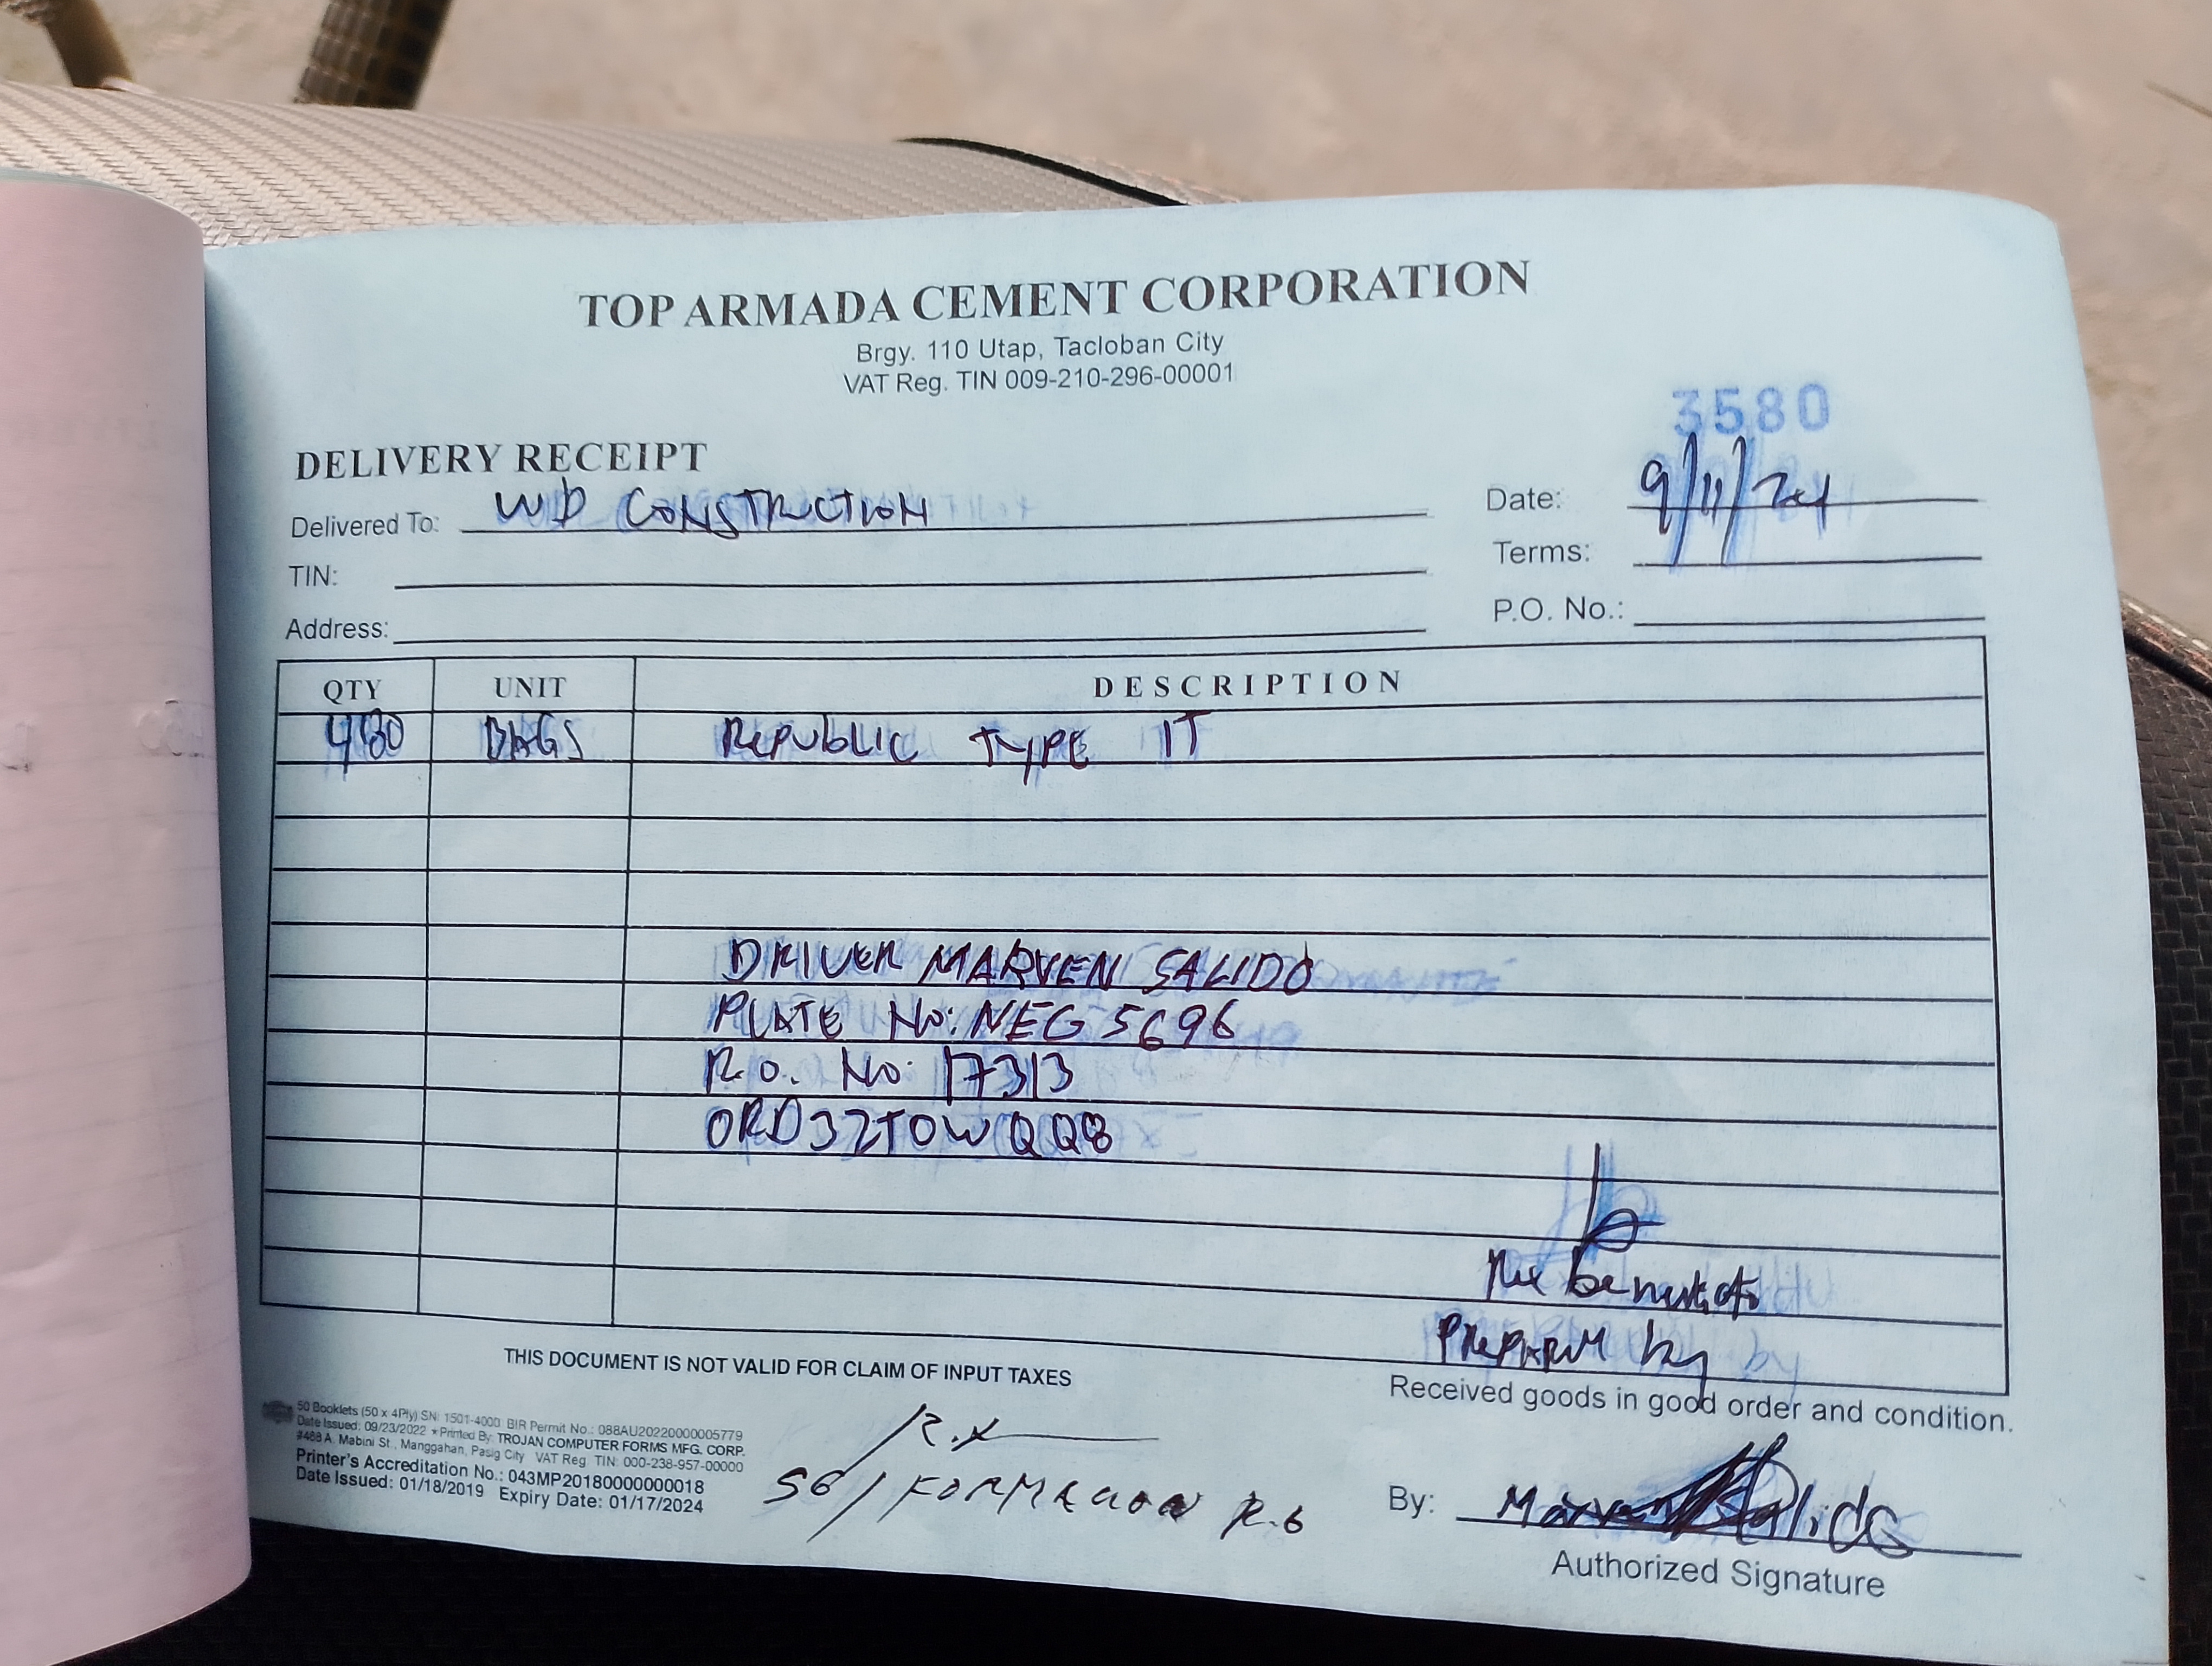 TOP ARMADA CEMENT CORPORATION
Brgy. 110 Utap, Tacloban City
VAT Reg. TIN 009-210-296-00001
3580
DELIVERY RECEIPT
Delivered To: WD CONSTRUCTION
Date: 9/11/24
TIN:
Terms:
Address:
P.O. No.:
QTY UNIT DESCRIPTION
BAGS Republic TYPE IT
DRIVER MARVEN SALIDO
PLATE No: NEG 5696
R.O. No: 17313
ORD32TOWQQ8
PREPARED by
THIS DOCUMENT IS NOT VALID FOR CLAIM OF INPUT TAXES
Received goods in good order and condition.
50 Booklets (50 x 4Ply) SN: 1501-4000 BIR Permit No.: 088AU20220000005779
Date Issued: 09/23/2022 * Printed By: TROJAN COMPUTER FORMS MFG. CORP.
#488 A. Mabini St., Manggahan, Pasig City VAT Reg. TIN: 000-238-957-00000
Printer's Accreditation No.: 043MP20180000000018
Date Issued: 01/18/2019 Expiry Date: 01/17/2024
By: Marven Salido
Authorized Signature